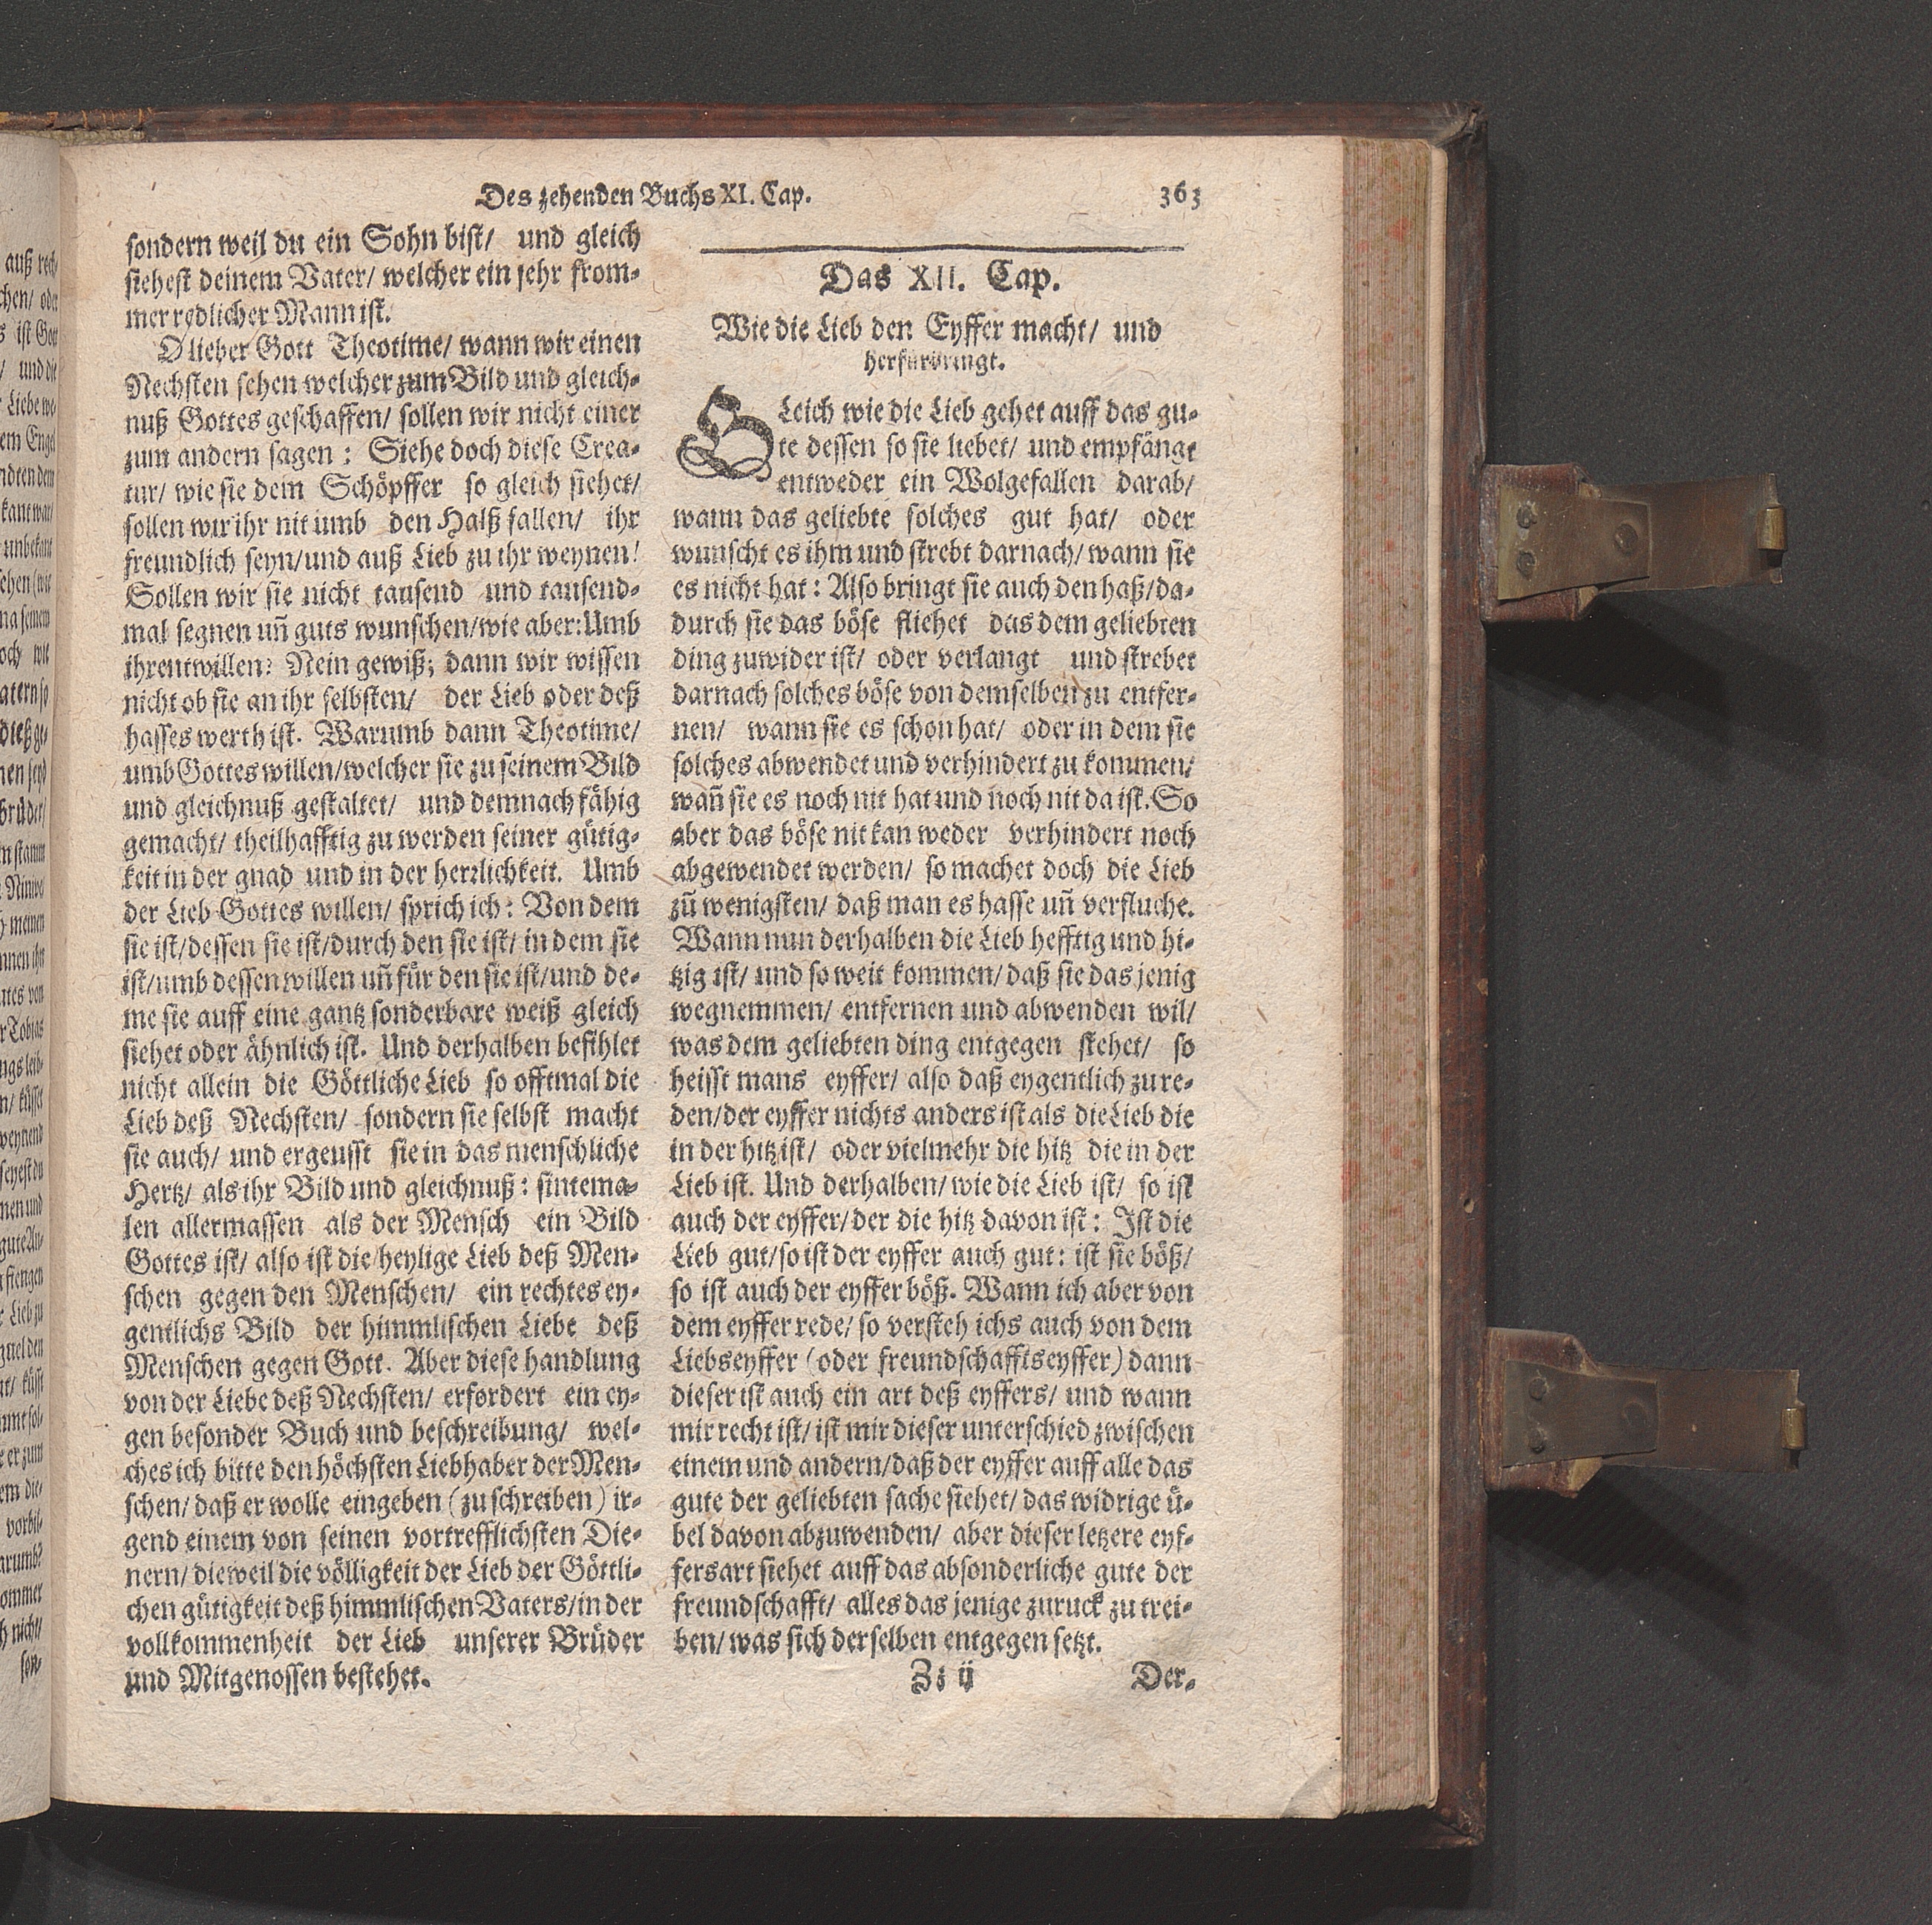 Des zehenden Buchs XI. Cap. 363
sondern weil du ein Sohn bist/ und gleich
siehest deinem Vater/ welcher ein sehr from-
mer redlicher Mann ist.
O lieber Gott Theotime/ wann wir einen
Nechsten sehen welcher zum Bild und gleich-
nuß Gottes geschaffen/ sollen wir nicht einer
zum andern sagen: Siehe doch diese Crea-
tur/ wie sie dem Schöpffer so gleich siehet/
sollen wir ihr nit umb den Halß fallen/ ihr
freundlich seyn/und auß Lieb zu ihr weynen!
Sollen wir sie nicht tausend und tausend-
mal segnen uñ guts wunschen/wie aber: Umb
ihrentwillen? Nein gewiß; dann wir wissen
nicht ob sie an ihr selbsten/ der Lieb oder deß
hasses werth ist. Warumb dann Theotime/
umb Gottes willen/welcher sie zu seinem Bild
und gleichnuß gestaltet/ und demnach fähig
gemacht/ theilhafftig zu werden seiner gütig-
keit in der gnad und in der herrlichkeit. Umb
der Lieb Gottes willen/ sprich ich: Von dem
sie ist/dessen sie ist/durch den sie ist/ in dem sie
ist/umb dessen willen uñ für den sie ist/und de-
me sie auff eine gantz sonderbare weiß gleich
siehet oder ähnlich ist. Und derhalben befihlet
nicht allein die Göttliche Lieb so offtmal die
Lieb deß Nechsten/ sondern sie selbst macht
sie auch/ und ergeusst sie in das menschliche
Hertz/ als ihr Bild und gleichnuß: sintema-
len allermassen als der Mensch ein Bild
Gottes ist/ also ist die heylige Lieb deß Men-
schen gegen den Menschen/ ein rechtes ey-
gentlichs Bild der himmlischen Liebe deß
Menschen gegen Gott. Aber diese handlung
von der Liebe deß Nechsten/ erfordert ein ey-
gen besonder Buch und beschreibung/ wel-
ches ich bitte den höchsten Liebhaber der Men-
schen/ daß er wolle eingeben (zu schreiben) ir-
gend einem von seinen vortrefflichsten Die-
nern/ dieweil die völligkeit der Lieb der Göttli-
chen gütigkeit deß himmlischen Vaters/in der
vollkommenheit der Lieb unserer Brüder
und Mitgenossen bestehet.
Das XII. Cap.
Wie die Lieb den Eyffer macht/ und
herfürbringt.
GLeich wie die Lieb gehet auff das gu-
te dessen so sie liebet/ und empfängt
entweder ein Wolgefallen darab/
wann das geliebte solches gut hat/ oder
wunscht es ihm und strebt darnach/ wann sie
es nicht hat: Also bringt sie auch den haß/da-
durch sie das böse fliehet das dem geliebten
ding zuwider ist/ oder verlangt und strebet
darnach solches böse von demselben zu entfer-
nen/ wann sie es schon hat/ oder in dem sie
solches abwendet und verhindert zu kommen/
wañ sie es noch nit hat und noch nit da ist. So
aber das böse nit kan weder verhindert noch
abgewendet werden/ so machet doch die Lieb
zū wenigsten/ daß man es hasse uñ verfluche.
Wann nun derhalben die Lieb hefftig und hi-
tzig ist/ und so weit kommen/ daß sie das jenig
wegnemmen/ entfernen und abwenden wil/
was dem geliebten ding entgegen stehet/ so
heisst mans eyffer/ also daß eygentlich zu re-
den/der eyffer nichts anders ist als die Lieb die
in der hitz ist/ oder vielmehr die hitz die in der
Lieb ist. Und derhalben/ wie die Lieb ist/ so ist
auch der eyffer/der die hitz davon ist: Ist die
Lieb gut/so ist der eyffer auch gut: ist sie böß/
so ist auch der eyffer böß. Wann ich aber von
dem eyffer rede/ so versteh ichs auch von dem
Liebseyffer (oder freundschafftseyffer) dann
dieser ist auch ein art deß eyffers/ und wann
mir recht ist/ ist mir dieser unterschied zwischen
einem und andern/daß der eyffer auff alle das
gute der geliebten sache siehet/ das widrige ü-
bel davon abzuwenden/ aber dieser letzere eyf-
fersart siehet auff das absonderliche gute der
freundschafft/ alles das jenige zuruck zu trei-
ben/ was sich derselben entgegen setzt.
Zz ij Der-